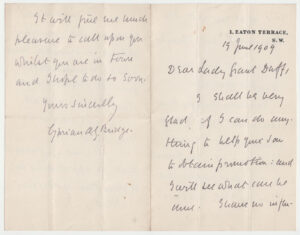 1, EATON TERRACE,
S.W.
19 June 1909
Dear Lady Grant Duff,
I shall be very
glad if I can do any-
thing to help your son
to obtain promotion: and
I will see what can be
done. I have no influ-
It will give me much
pleasure to call upon you
whilst you are in Town
and I hope to do so soon.
Yours sincerely
Cyprian A G Bridge.